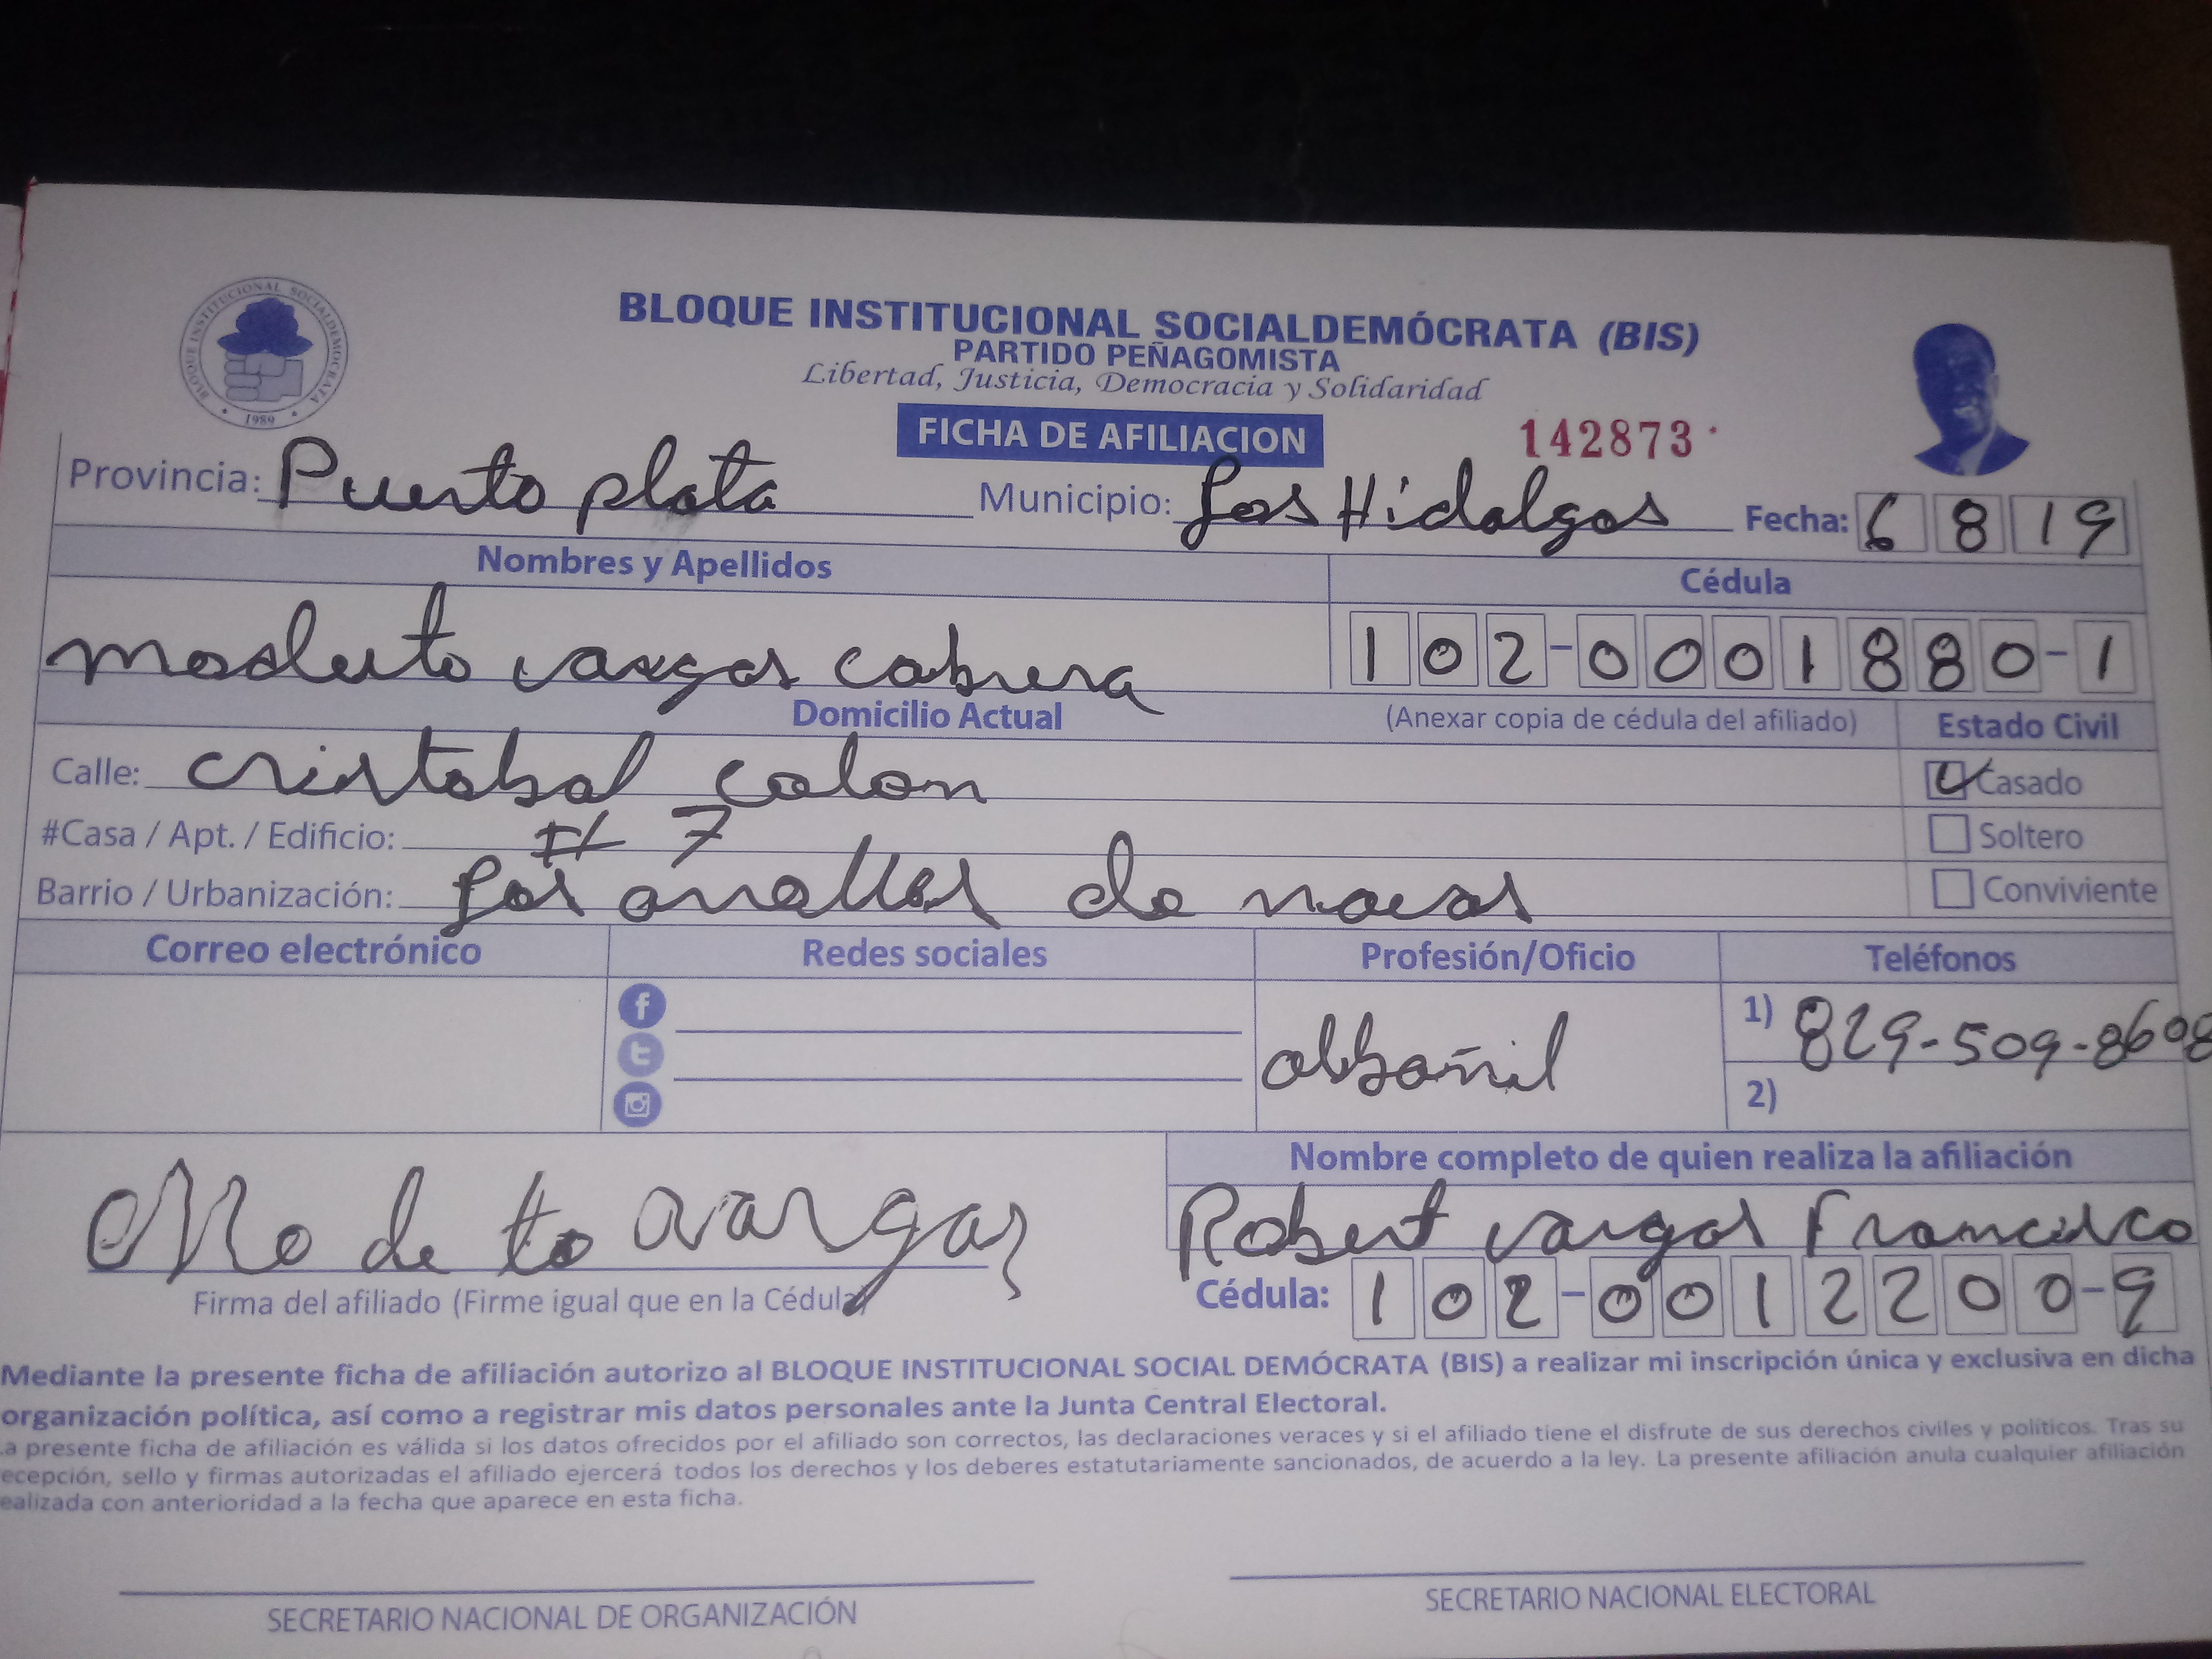 BLOQUE INSTITUCIONAL SOCIALDEMÓCRATA
1989
BLOQUE INSTITUCIONAL SOCIALDEMÓCRATA (BIS)
PARTIDO PEÑAGOMISTA
Libertad, Justicia, Democracia y Solidaridad
FICHA DE AFILIACION 142873
Provincia: Puerto plata Municipio: Los Hidalgos Fecha: 6 8 19
Nombres y Apellidos Cédula
modesto vargas cabrera 102-0001880-1
Domicilio Actual (Anexar copia de cédula del afiliado) Estado Civil
Calle: cristobal colon Casado
#Casa / Apt. / Edificio: # 7 Soltero
Barrio / Urbanización: Los de Conviviente
Correo electrónico Redes sociales Profesión/Oficio Teléfonos
albañil 1) 829-509-8608
2)
Nombre completo de quien realiza la afiliación
Mo de to vargas Robert vargas Francisco
Firma del afiliado (Firme igual que en la Cédula) Cédula: 102-0012200-9
Mediante la presente ficha de afiliación autorizo al BLOQUE INSTITUCIONAL SOCIAL DEMÓCRATA (BIS) a realizar mi inscripción única y exclusiva en dicha
organización política, así como a registrar mis datos personales ante la Junta Central Electoral.
a presente ficha de afiliación es válida si los datos ofrecidos por el afiliado son correctos, las declaraciones veraces y si el afiliado tiene el disfrute de sus derechos civiles y políticos. Tras su
ecepción, sello y firmas autorizadas el afiliado ejercerá todos los derechos y los deberes estatutariamente sancionados, de acuerdo a la ley. La presente afiliación anula cualquier afiliación
ealizada con anterioridad a la fecha que aparece en esta ficha.
SECRETARIO NACIONAL DE ORGANIZACIÓN SECRETARIO NACIONAL ELECTORAL